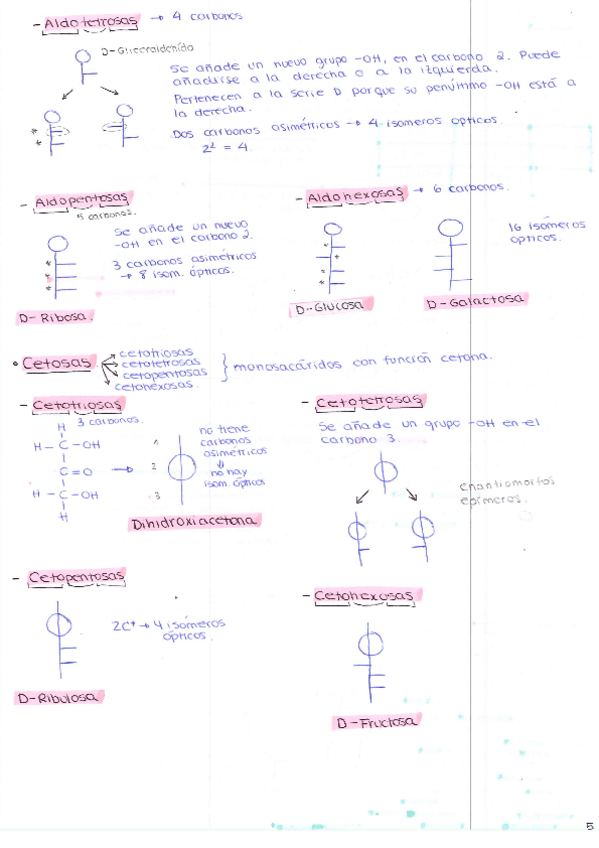 - Aldotetrosas → 4 carbonos
D-Gliceraldehído
Se añade un nuevo grupo -OH, en el carbono 2. Puede
añadirse a la derecha o a la izquierda.
Pertenecen a la serie D porque su penúltimo -OH está a
la derecha.
Dos carbonos asimétricos → 4 isómeros ópticos.
2² = 4
- Aldopentosas
5 carbonos.
Se añade un nuevo
-OH en el carbono 2.
3 carbonos asimétricos
→ 8 isom. ópticos.
D-Ribosa.
- Aldohexosas → 6 carbonos.
16 isómeros
ópticos.
D-Glucosa
D-Galactosa
• Cetosas
cetotriosas
cetotetrosas
cetopentosas
cetohexosas.
} monosacáridos con función cetona.
- Cetotriosas
3 carbonos.
H
H - C - OH
C = O
H - C - OH
H
1
2
3
no tiene
carbonos
asimétricos
↓
no hay
isom. ópticos
Dihidroxiacetona
- Cetotetrosas
Se añade un grupo -OH en el
carbono 3.
enantiomorfos
epímeros.
- Cetopentosas
2C* → 4 isómeros
ópticos.
D-Ribulosa
- Cetohexosas
D-Fructosa
5